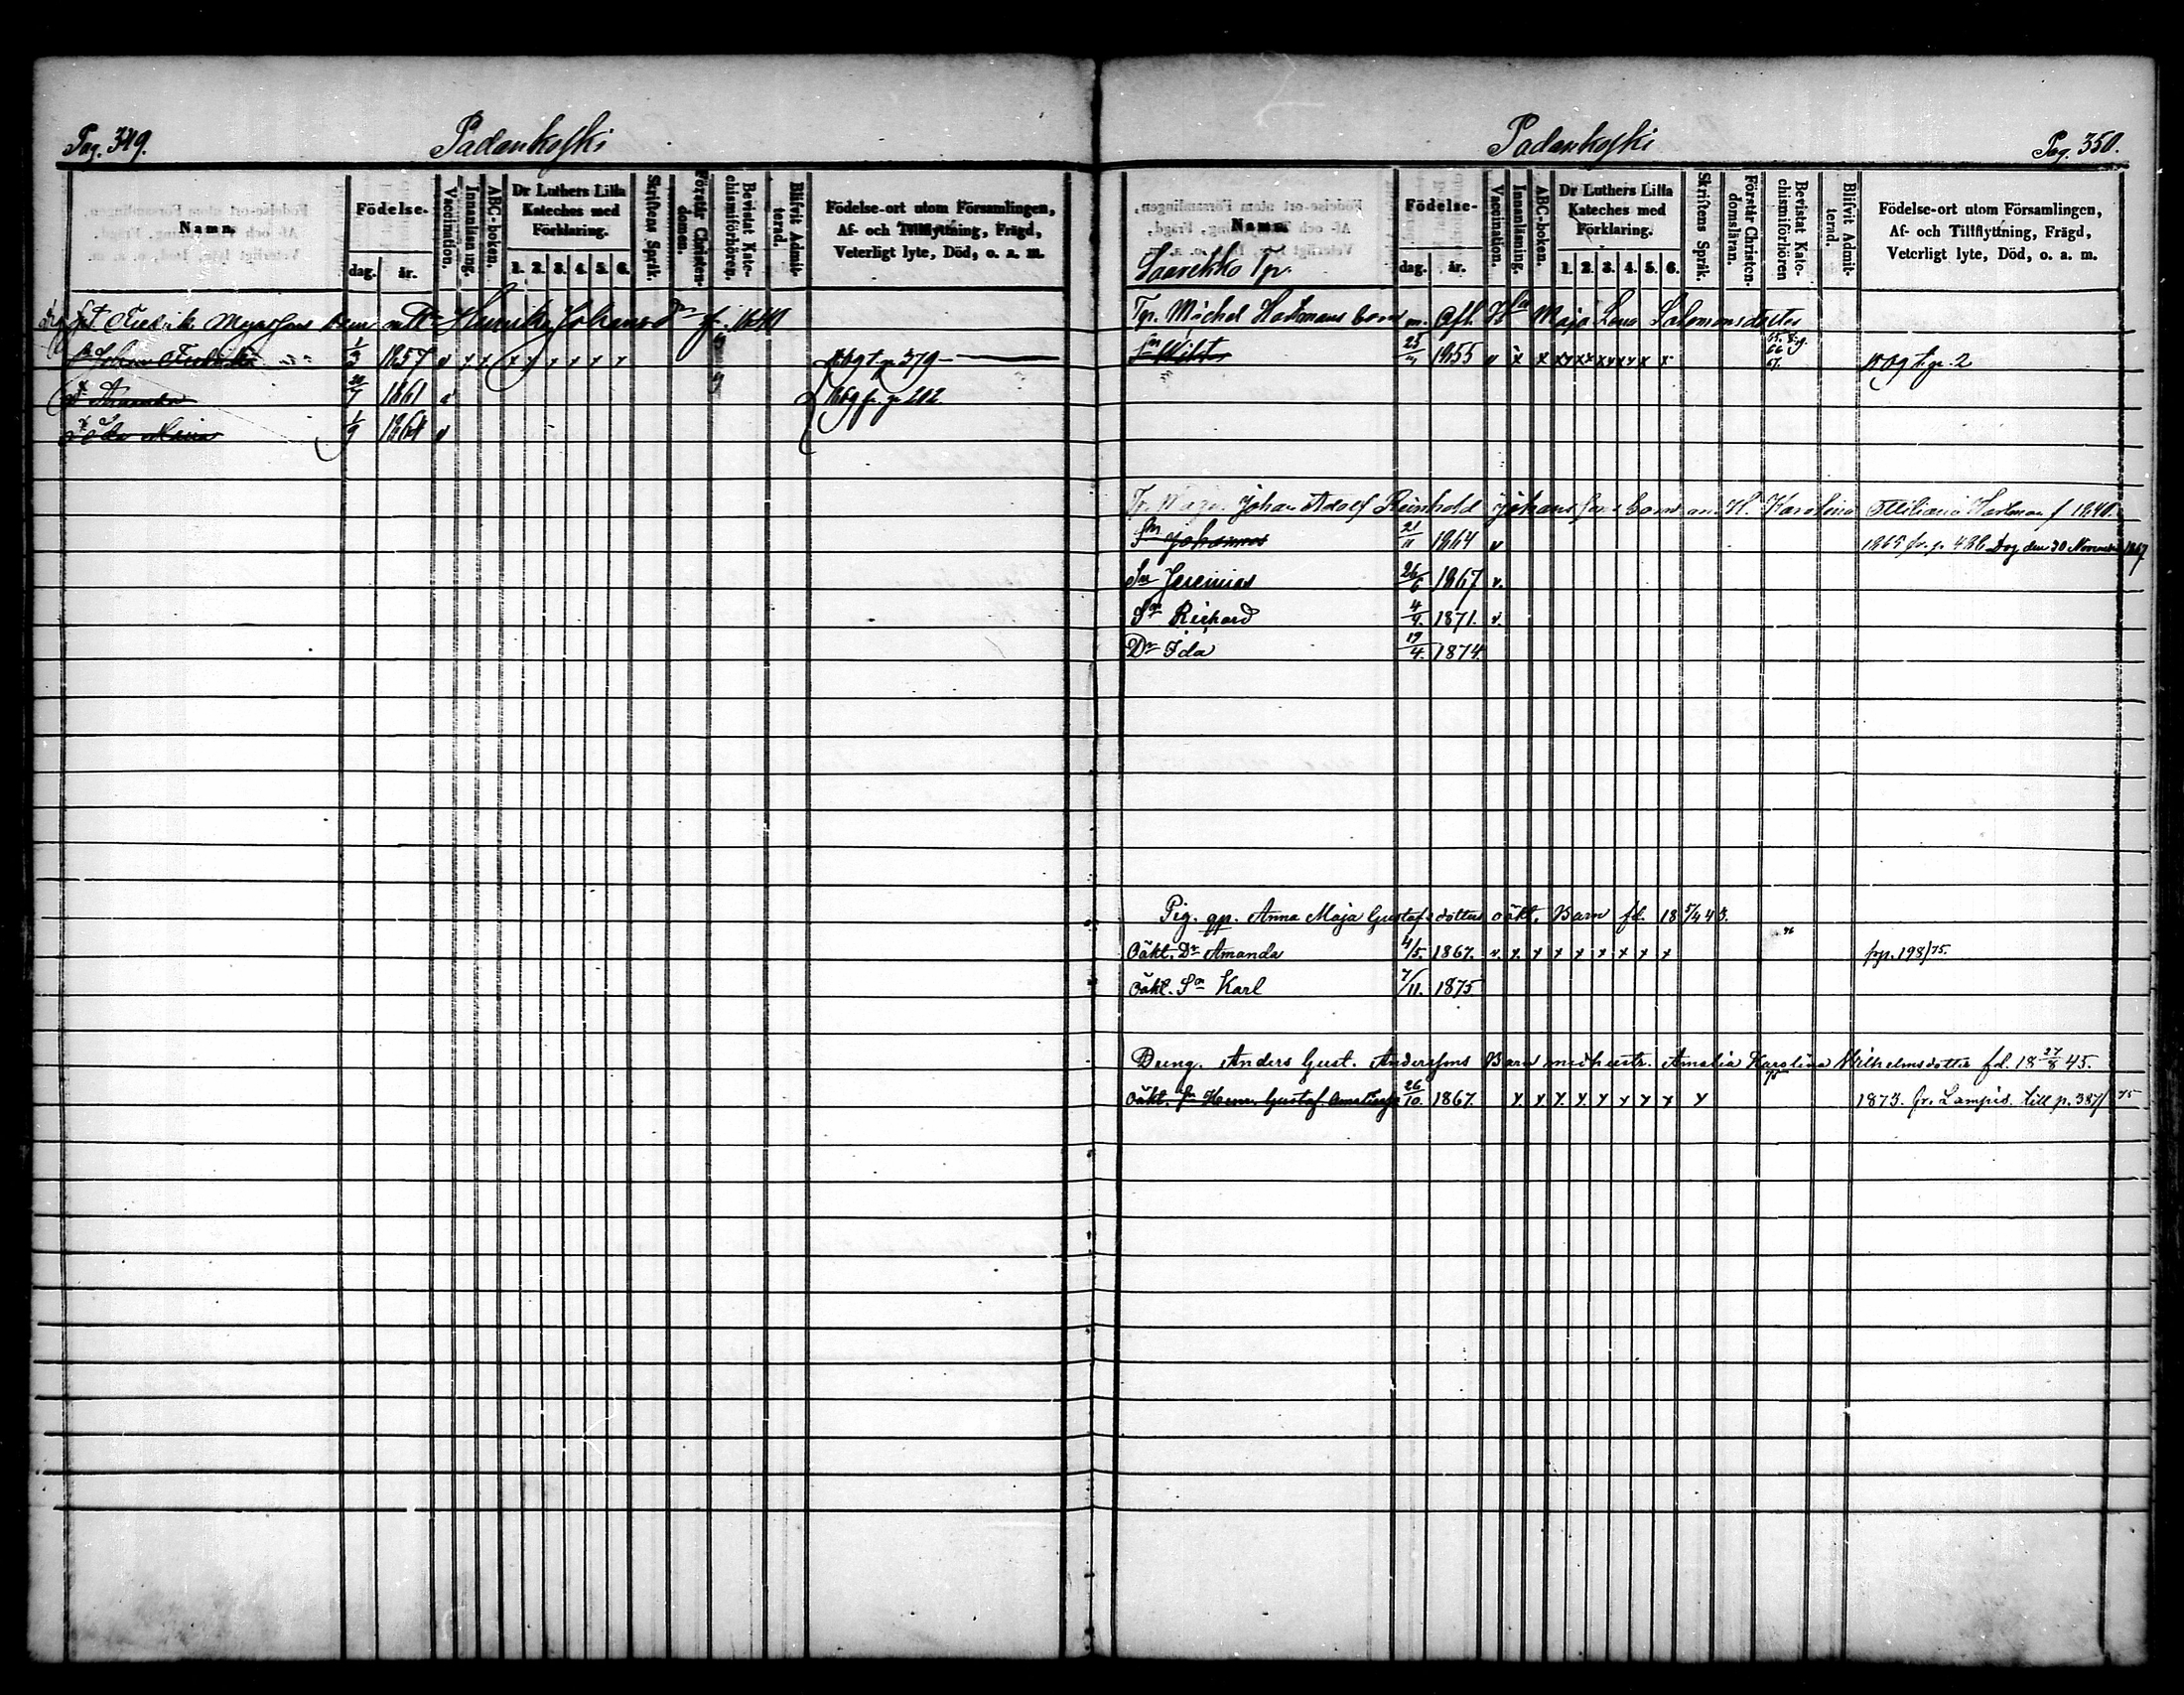 Pag. 349.
Padankoski
Namn.
Födelse-
dag. år.
Vaccination.
Innanläsning.
ABC-boken.
Dr Luthers Lilla Kateches med Förklaring.
1. 2. 3. 4. 5. 6.
Skriftens Språk.
Förstår Christendomen.
Bevistat Katechismiförhören.
Blifvit Admitterad.
Födelse-ort utom Församlingen,
Af- och Tillflyttning, Frägd,
Veterligt lyte, Död, o. a. m.
Fredrik barn Henrika Johansd:r f. 1840
Johan Fredrik 1/3 1857 v x x x x x x x x t. p. 379
Amanda 20/7 1861 v fr. p. 212.
Ida Maria 1/9 1864 v
Padankoski
Pag. 350.
Namn.
Saarekko Tp.
Födelse-
dag. år.
Vaccination.
Innanläsning.
ABC-boken.
Dr Luthers Lilla Kateches med Förklaring.
1. 2. 3. 4. 5. 6.
Skriftens Språk.
Förstår Christendomsläran.
Bevistat Katechismiförhören
Blifvit Admitterad.
Födelse-ort utom Församlingen,
Af- och Tillflyttning, Frägd,
Veterligt lyte, Död, o. a. m.
Tp. Michel Hakmans barn m. Afl. H:u Maja Lena Salomonsdotter
Sn Viktor 1855 v x x x x x x x x 66 67. t. p. 2
Johan Adolf Reinhold Johanssons barn m. H. Karolina Hakman f 1840.
Sn Johannes 21/11 1864 v 1865 fr. p. 486 Dog den 30 November 1867
Sn Jeremias 26/6 1867 v.
Sn Richard 4/9. 1871. v.
Dr Ida 19/4. 1874.
Pig. qp. Anna Maja Gustafsdotters oäkt. Barn fd. 18 5/4 43.
Oäkt. Dr Amanda 4/5. 1867. v. x. x x x x x x x frp. 198/75.
Oäkt. Sn Karl 7/11. 1875
Dreng. Anders Gust. Anderssons Barn med hustr. Amalia Karolina Wilhelmsdotter fd. 18 27/8 45.
Oäkt. Sn Henr. Gustaf. 26/10. 1867. x. x x. x. x x x x x 1873. fr. Lampis. till p. 387/75